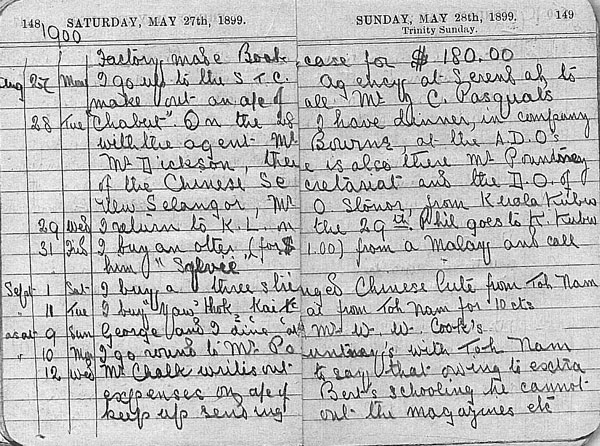 148 SATURDAY, MAY 27th, 1899.
SUNDAY, MAY 28th, 1899. 149
Trinity Sunday.
1900
Factory made Book case for $180.00
Aug 27 Mon I go up to the S T.C. agency at Serembah to
make out an a/c of all Mr C. Pasquals
28 Tue "Chabut". On the 28 I have dinner, in company
with the agent Mr Bowns, at the A.D.O's
Mr Dickson, there is also there Mr Pountney
of the Chinese Secretariat and the D.O. of
Ulu Selangor, Mr O Stonor, from Kuala Kubu
29 Wed I return to K.L. on the 29th. Phil goes to K. Kubu
31 Fri I buy an otter, (for $1.00) from a Malay and call
him "Sylvie"
Sept 1 Sat I buy a three stringed Chinese lute from Toh Nam
" 11 Tue I buy "Yaw" Hok, Kai K at from Toh Nam for 10 cts
as at 9 Sun George and I dine at Mr W. W. Cook's
" 10 Mon I go round to Mr Pountney's with Toh Nam
12 Wed Mr Chalk writes out to say that owing to extra
expenses on a/c of Bert's schooling he cannot
keep up sending out the magazines etc